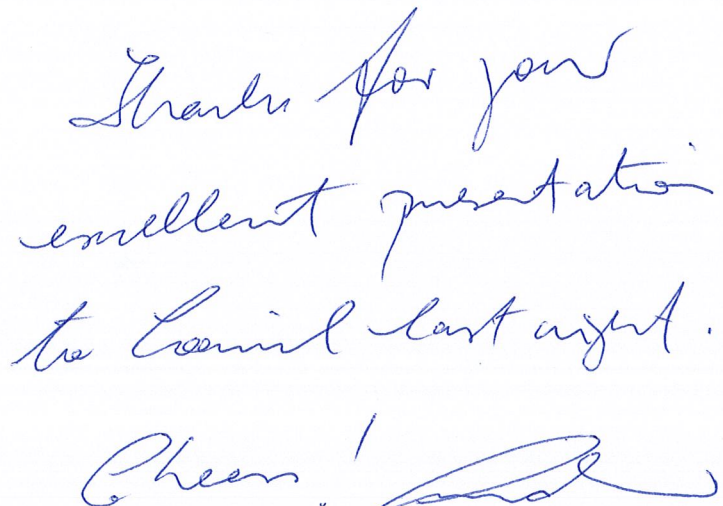 Thanks for your
excellent presentation
to Council last night.
Cheers!